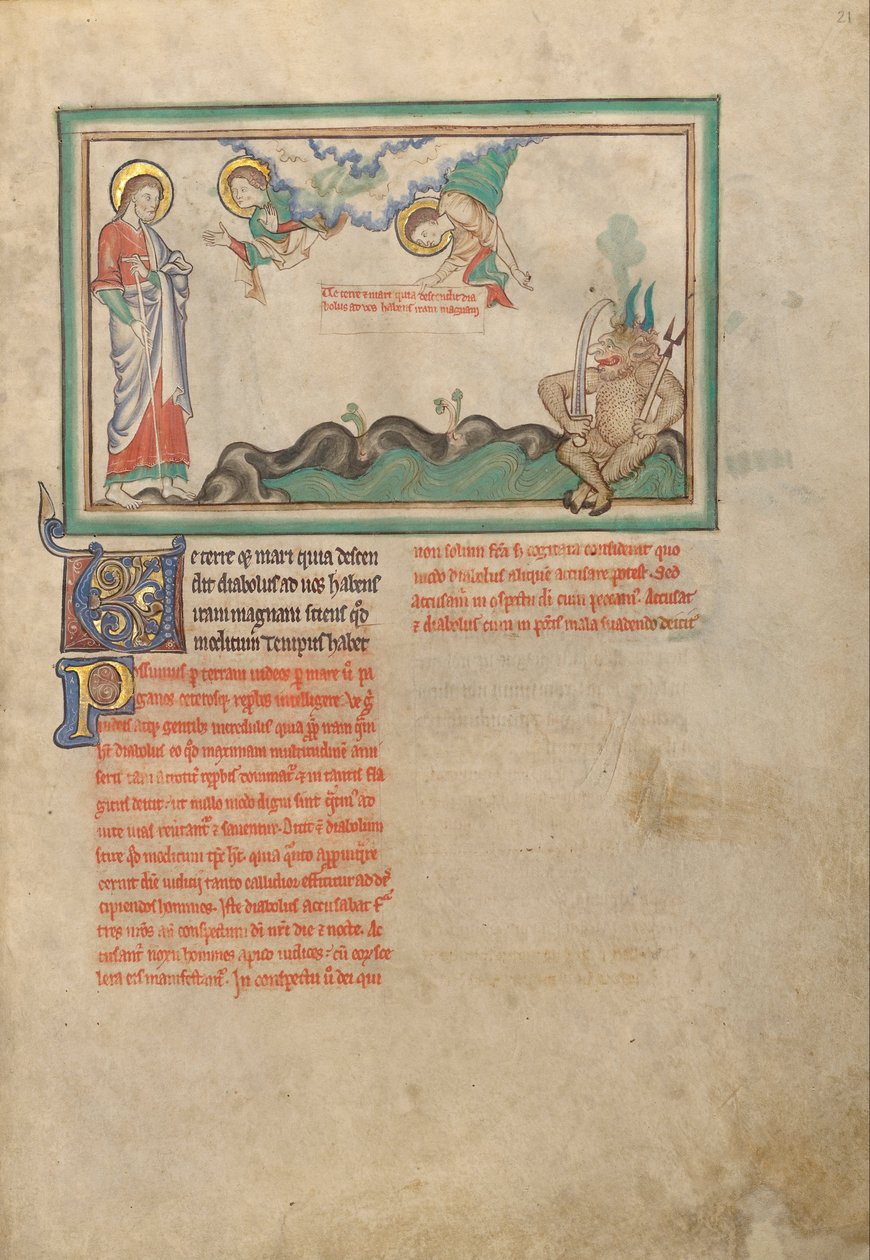 21
Ve terre & mari quia descendit dia
bolus ad vos habens iram magnam
Ve terre & mari quia descen
dit diabolus ad uos habens
iram magnam sciens qd
modicum tempus habet
Possumus p terram iudeos p mare u pa
ganos ceterosq reprobos intelligere. Ve g
iudeis atq gentibus incredulis quia ppt iram qm
ht diabolus eo qd maximam multitudine ami
serit tam atrociter reprobis dominatur & in tantis fla
giciis deicit ut nullo modo digni sint
uite uias reuertantur & saluentur. Dicit diabolum
scire qd modicum tps ht. quia qnto appinqre
cernit die iudicij tanto callidior efficitur ad de
cipiendos homines. Iste diabolus accusabat fra
tres nros an conspectum di nri die & nocte. Ac
cusant noxii homines apud iudices cu eor sce
lera eis manifestant. In conspectu u dei qui
non solum fca s cogitata considerat quo
modo diabolus alique accusare potest. Sed
accusam in conspectu di cum peccam. Accusat
& diabolus cum in peccatis mala suadendo deicit